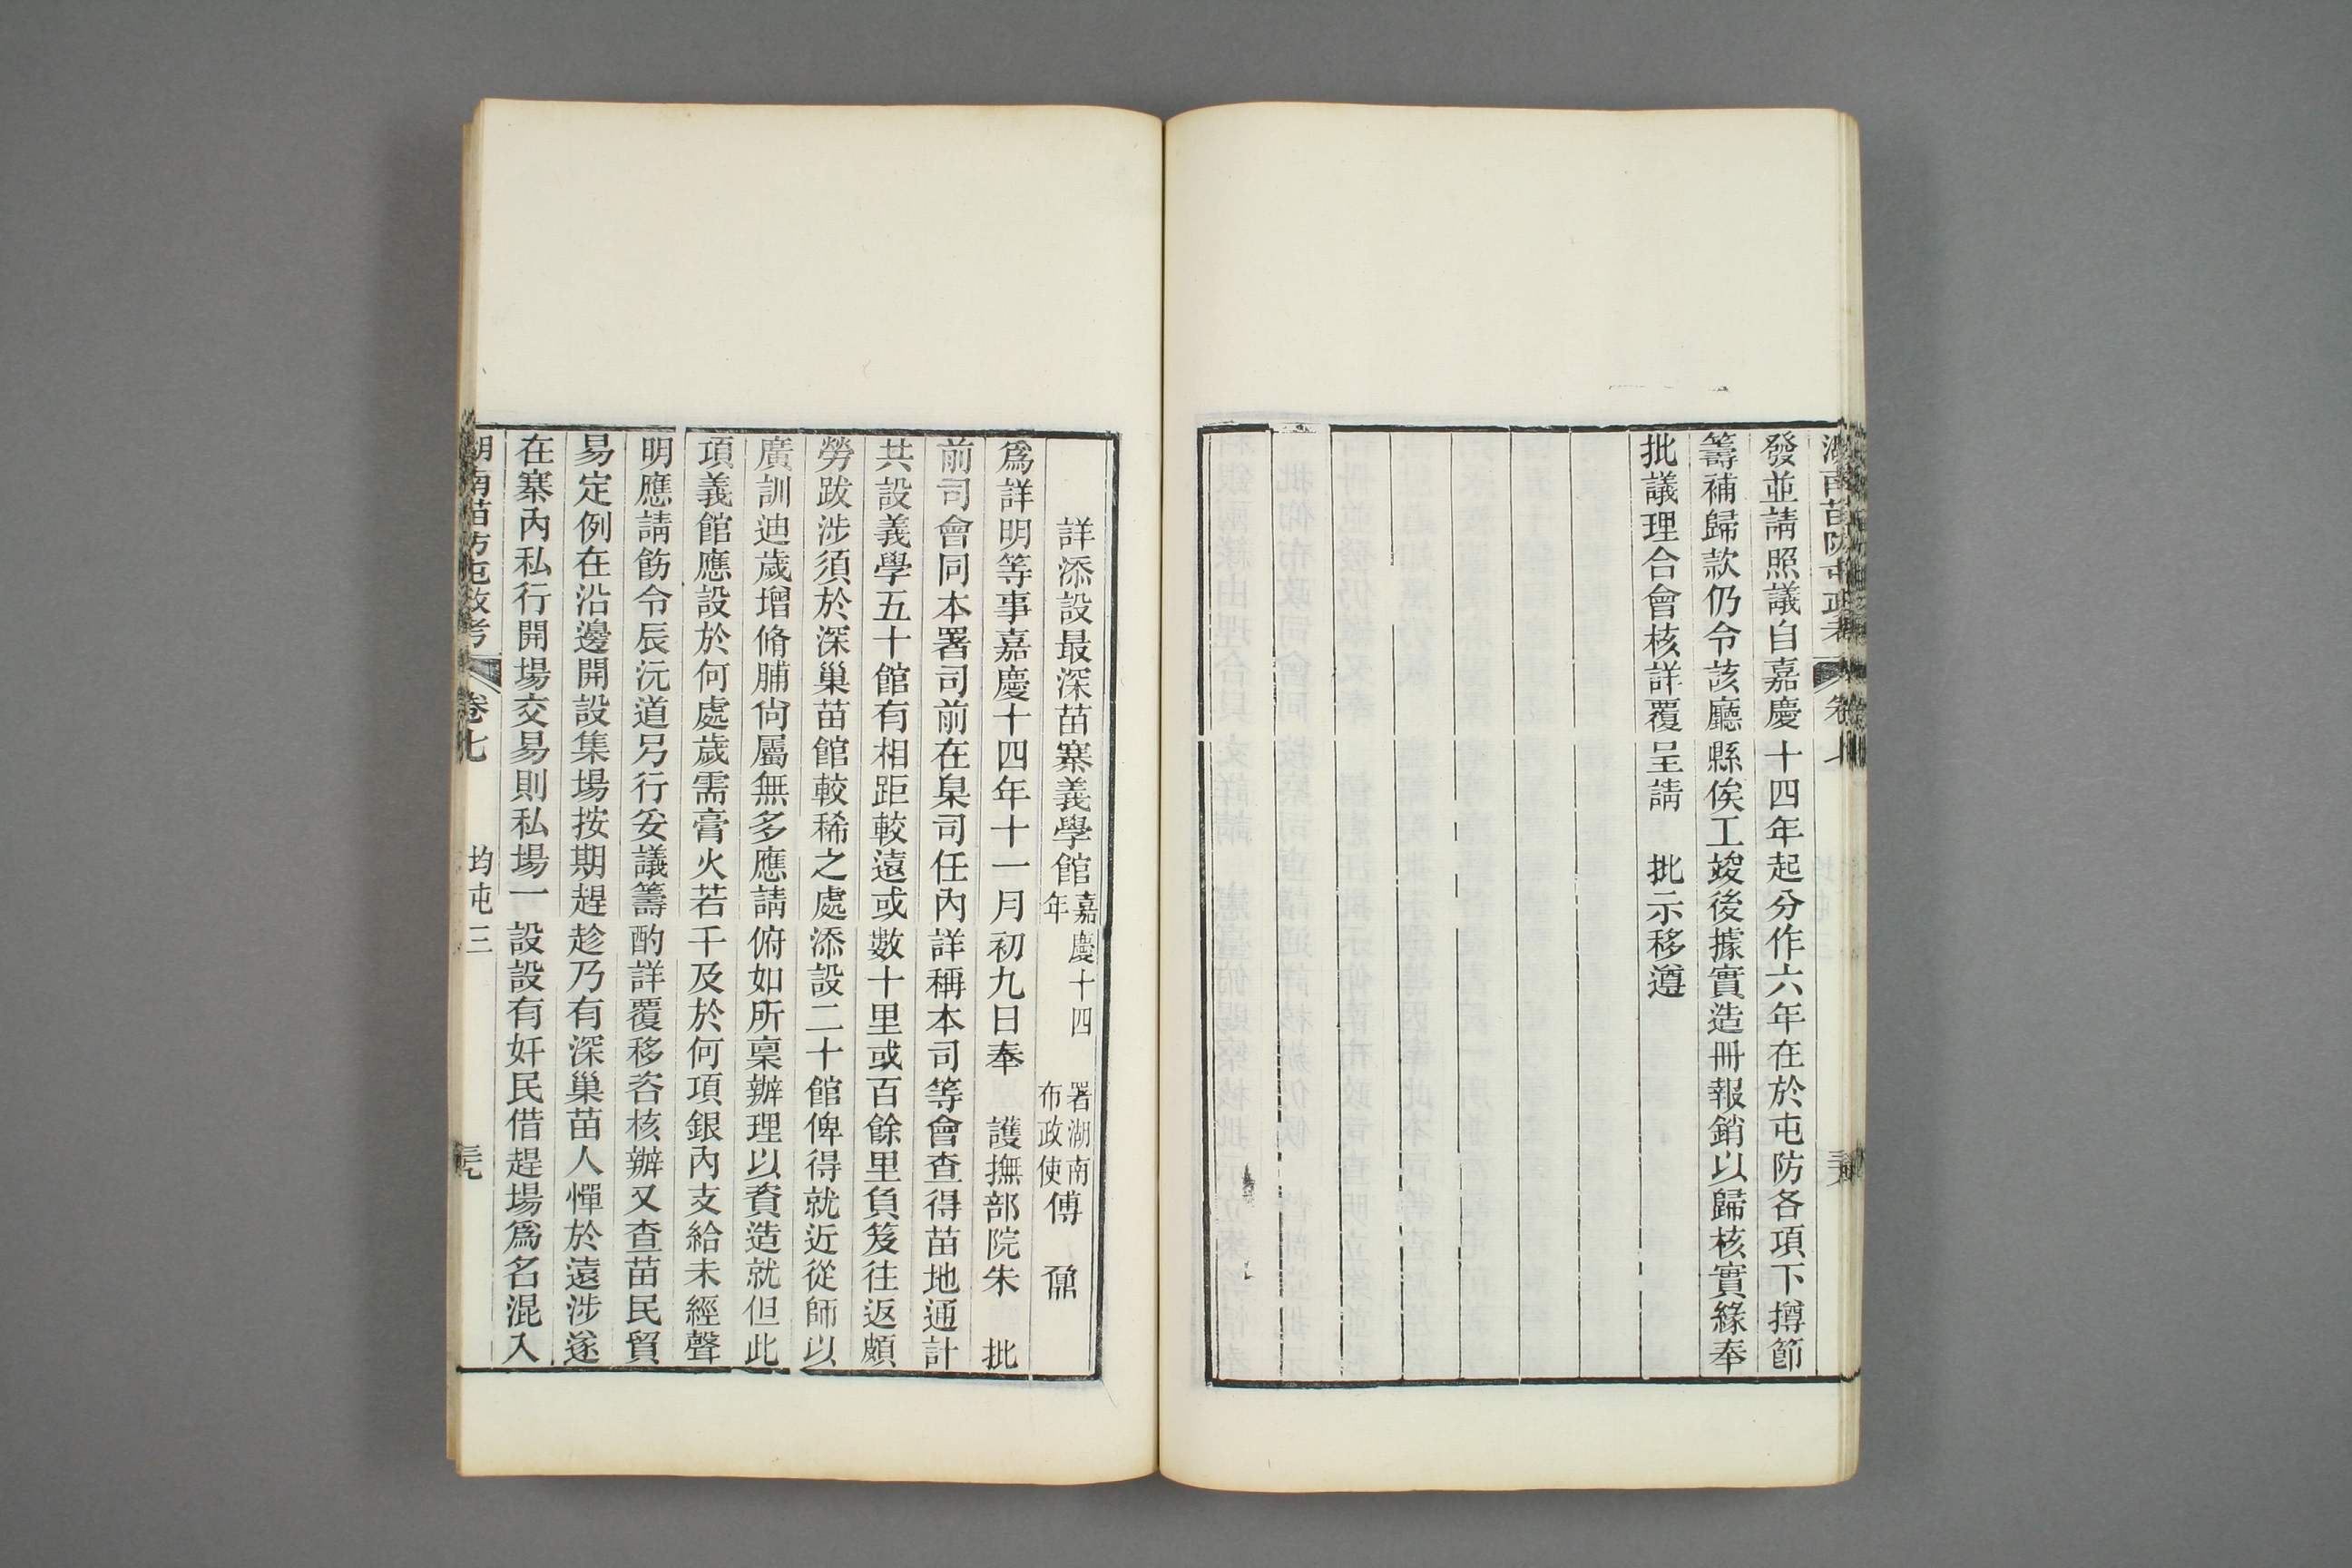 湖南苗防屯政考 卷七
發並請照議自嘉慶十四年起分作六年在於屯防各項下撙節
籌補歸款仍令該廳縣俟工竣後據實造冊報銷以歸核實緣奉
批議理合會核詳覆呈請 批示移遵
詳添設最深苗寨義學館嘉慶十四年 署湖南布政使傅 鼐
爲詳明等事嘉慶十四年十一月初九日奉 護撫部院朱 批
前司會同本署司前在臬司任內詳稱本司等會查得苗地通計
共設義學五十館有相距較遠或數十里或百餘里負笈往返頗
勞跋涉須於深巢苗館較稀之處添設二十館俾得就近從師以
廣訓迪歲增脩脯尙屬無多應請俯如所稟辦理以資造就但此
項義館應設於何處歲需膏火若干及於何項銀內支給未經聲
明應請飭令辰沅道另行妥議籌酌詳覆移咨核辦又查苗民貿
易定例在沿邊開設集場按期趕趁乃有深巢苗人憚於遠涉遂
在寨內私行開場交易則私場一設設有奸民借趕場爲名混入
湖南苗防屯政考 卷七 均屯三 三九